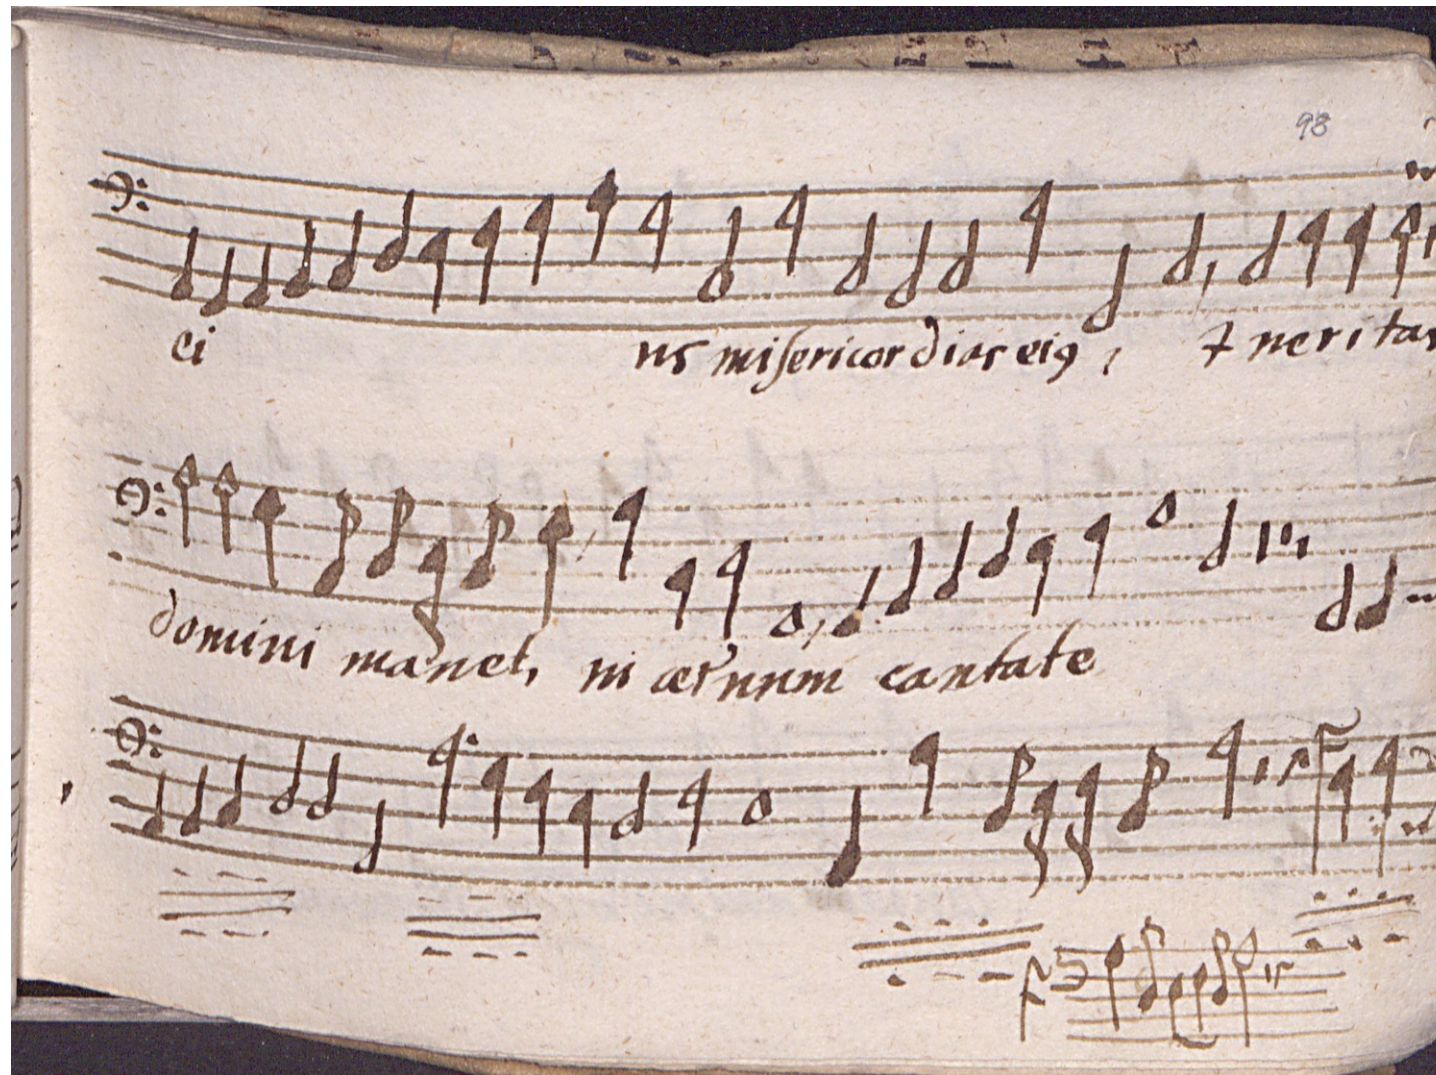 98
ei us misericordias eiꝯ, & veritas
domini manet, in æternum cantate